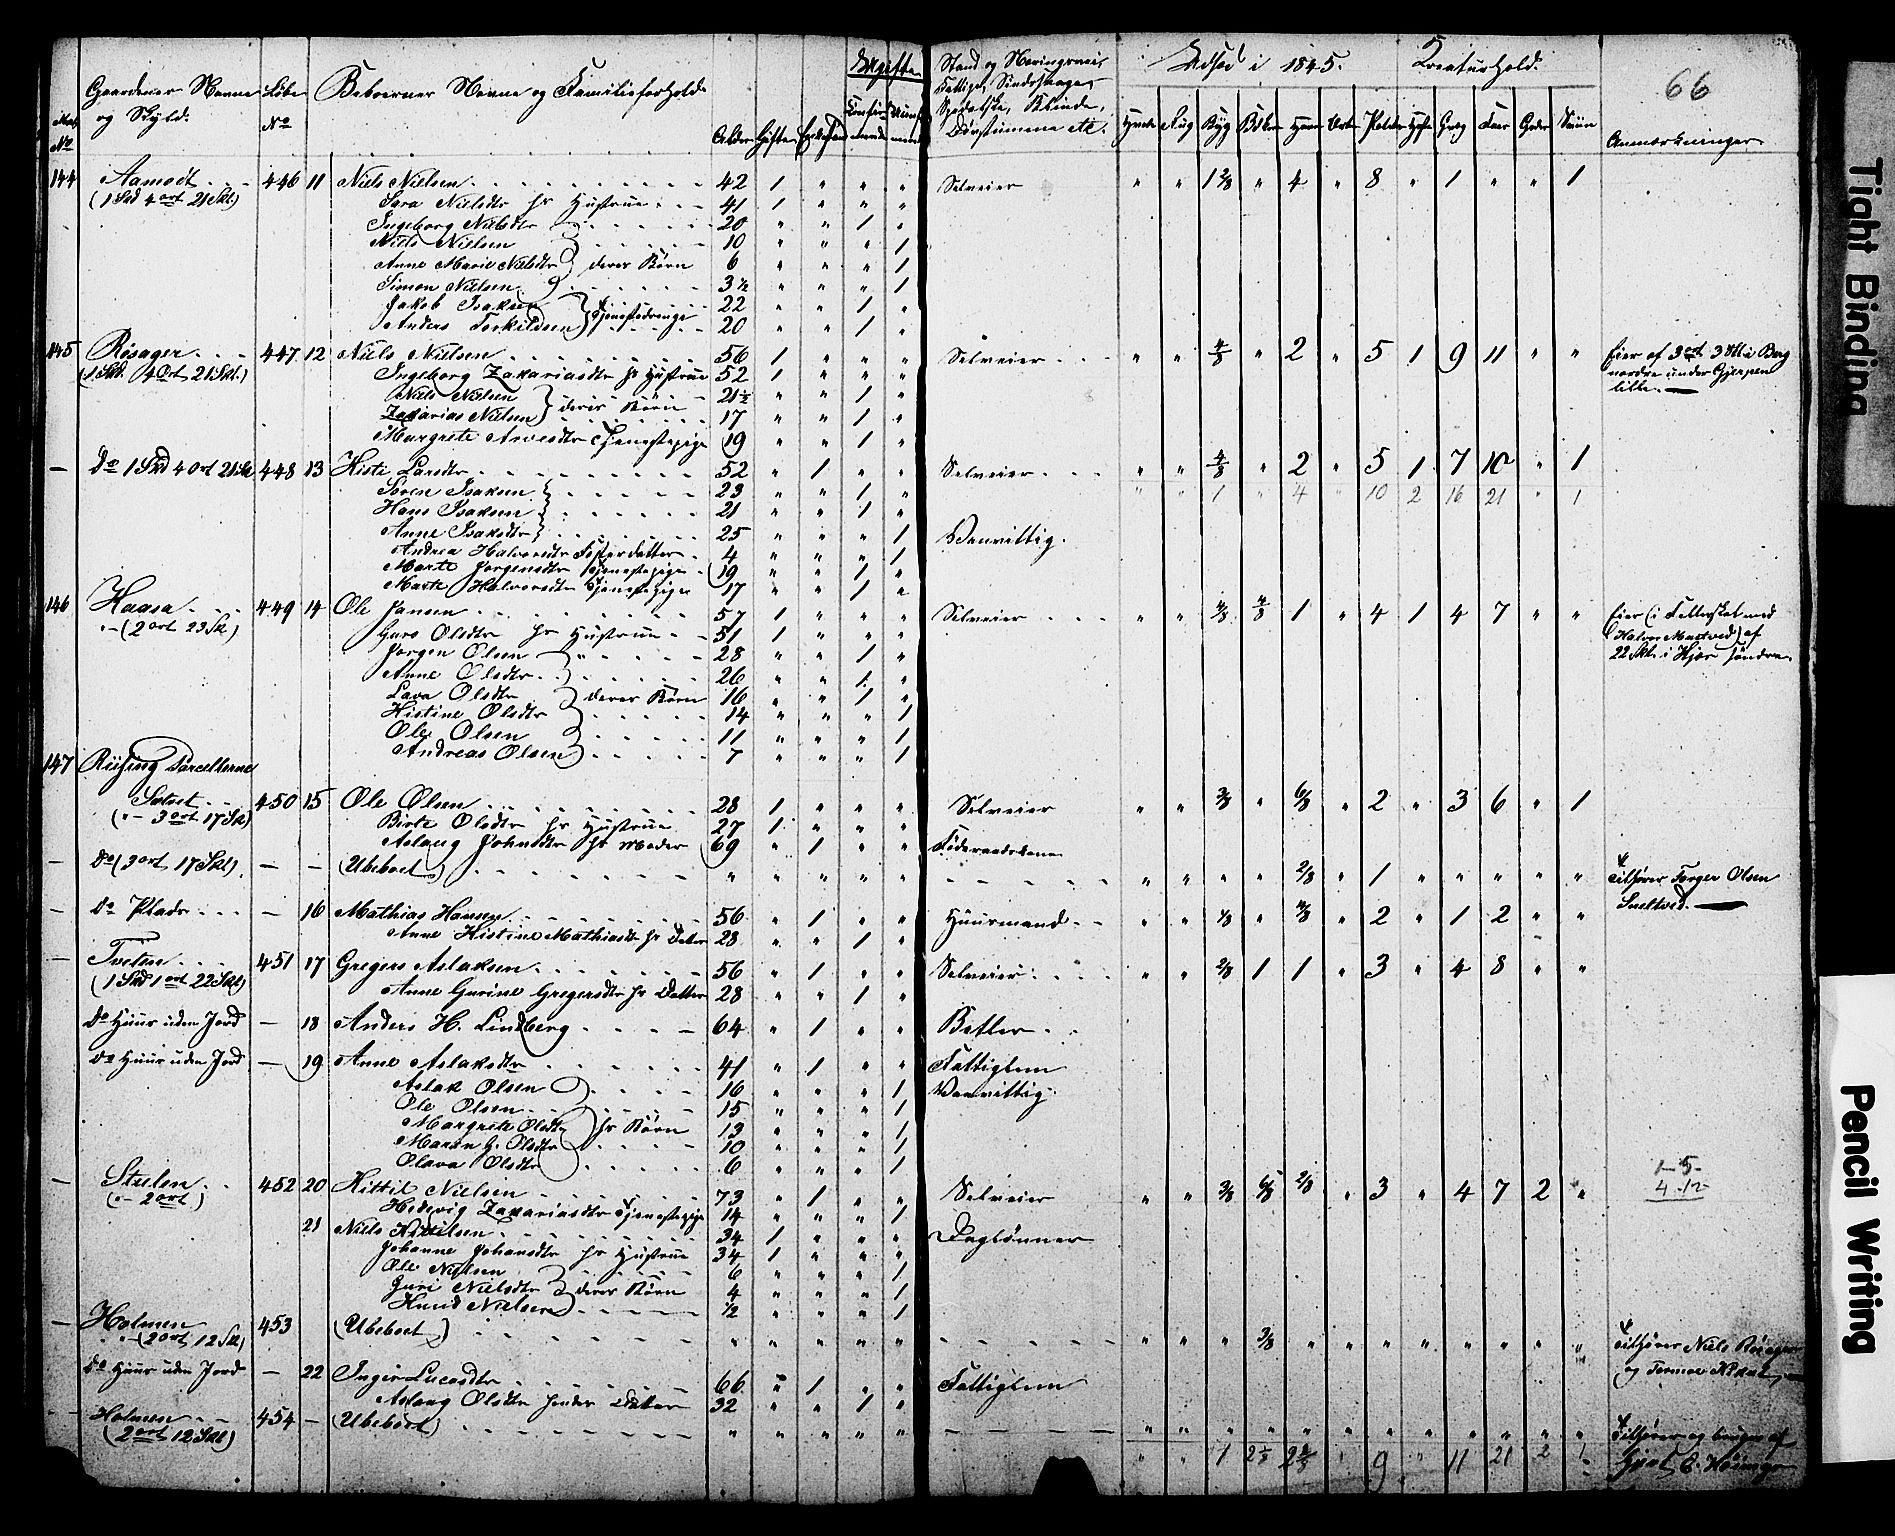 66
Mat. No
Gaardenes Navne og Skyld.
Løbe No
Beboernes Navne og Familieforhold.
Alder
Gifte
Ugifte
Stand og Næringsvei
Fattige, Sindssvage,
Spedalske, Blinde,
Døvstumme etc.
Udsæd i 1845.
Kreaturhold.
Hvede Rug Byg Havre Erter Heste Faar Sviin
Anmærkninger
144 Aamodt 446 11 Niels Nielsen 42 1 " " " Selveier " " 1 2/8 " 4 " 8 " 1 " " 1
(1 Skd 4 ort 21 Skl) Sara Nielsdtr hs Hustrue 41 1 " " "
Ingeborg Nielsdtr 20 " " 1 "
Niels Nielsen 10 " " " 1
Anne Marie Nielsdtr } deres Børn 6 " " " 1
Simon Nielsen 3 1/2 " " " 1
Jakob Isaksen 22 " " 1 "
Anders Torkildsen } Tjenestedrenge 20 " " 1 "
145 Røsager 447 12 Niels Nielsen 56 1 " " " Selveier " " 4/8 " 2 " 5 1 9 11 " " Eier af 3 ort 3 Skl i Berg
(1 Skd. 4 Ort 21 Skl.) Ingeborg Zakariasdtr hs Hustrue 52 1 " " " nordre under Gjerpen
Niels Nielsen 21 1/2 " " 1 "
Zakarias Nielsen } deres Børn 17 " " 1 "
Margrete Tjenestepige 19 " " 1 "
— Do 1 Skd 4 Ort 21 Skl 448 13 Kisti Larsdtr 52 " 1 " " Selveier " " 4/8 " 2 " 5 1 7 10 " 1
Søren Isaksen 23 " " 1 " " " 1 " 4 " 10 2 16 21 " 1
Hans Isaksen 21 " " 1 "
Anne Isaksdtr 25 " " " 1 Vanvittig.
Andrea Halvorsdtr Fosterdatter 4 " " " 1
Marte Jørgensdtr Tjenestepige 19 " " 1 "
Marte Halvorsdtr Tjenestepige 17 " " 1 "
146 Haasa 449 14 Ole Jansen 57 1 " " " Selveier " " 4/8 4/8 1 " 4 1 4 7 " " Eier (i Fellesskab med
" - (2 ort 23 Skl) Guro Olsdtr hs Hustrue 51 1 " " " Halvor ) af
Jørgen Olsen 28 " " 1 " 22 Skl. i søndre
Anne Olsdtr 26 " " 1 "
Lava Olsdtr } deres Børn 16 " " 1 "
Kistine Olsdtr 14 " " " 1
Ole Olsen 11 " " " 1
Andreas Olsen 7 " " " 1
147 Riising Parcellerne
450 15 Ole Olsen 28 1 " " " Selveier " " 3/8 " 6/8 " 2 " 3 6 " 1
(" - 3 ort 17 Skl) Birte Olsdtr hs Hustrue 27 1 " " "
Aslaug Johnsdtr hs Moder 69 " 1 " " Føderaadskone
— Do (3 ort 17 Skl) — — (Ubeboet) " " " " " " " " " 2/8 " 1 " " " " " Tilhører Olsen
— Do Plads — 16 Mathias Hansen 56 " 1 " " Huusmand " " 1/8 " 4/8 " 2 " 1 2 " "
Anne Kistine Mathiasdtr hs Datter 28 " " 1 "
— Tveten 451 17 Gregers Aslaksen 56 " 1 " " Selveier " " 2/8 1 1 " 3 " 4 8 " "
(1 Skd 1 ort 22 Skl) Anne Gurine Gregersdtr hs Datter 28 " " 1 "
Do Huus uden Jord — 18 Anders H. Lindberg 64 " 1 " " Betler
Do Huus uden Jord — 19 Anne Aslaksdtr 41 " 1 " " Fattiglem
Aslak Olsen 16 " " " 1 Vanvittig
Ole Olsen 15 " " " 1
Margrete Olsdtr } hs Børn 13 " " " 1
Maren G. Olsdtr 10 " " " 1
Olava Olsdtr 6 " " " 1
— Stulen 452 20 Kittil Nielsen 73 " 1 " " Selveier " " 3/8 6/8 2/8 " 3 " 4 7 2 "
(" - 2 ort) Hedevig Zakariasdtr Tjenestepige 14 " " " 1
21 Niels Kittilsen 34 1 " " " Dagslønner
Johanne Johansdtr hs Hustrue 34 1 " " "
Ole Nielsen 6 " " " 1
Guri Nielsdtr } deres Børn 4 " " " 1
Knud Nielsen 1/2 " " " 1
— Holmen 453 (Ubeboet) " " " " " " " 3/8 " " " " " " " " Tilhører Niels
" - (2 ort 12 Skl)
Do Huus uden Jord — 22 Inger Lucasdtr 66 " 1 " " Fattiglem
Aslaug Olsdtr hendes Datter 32 " " 1 "
Holmen 454 — (Ubeboet) " " " " " " " " " " " " " " " " Tilhører og bruges af
(2 ort 12 Skl) " " 1 9 " 11 21 2 1
Tight Binding
Pencil Writing